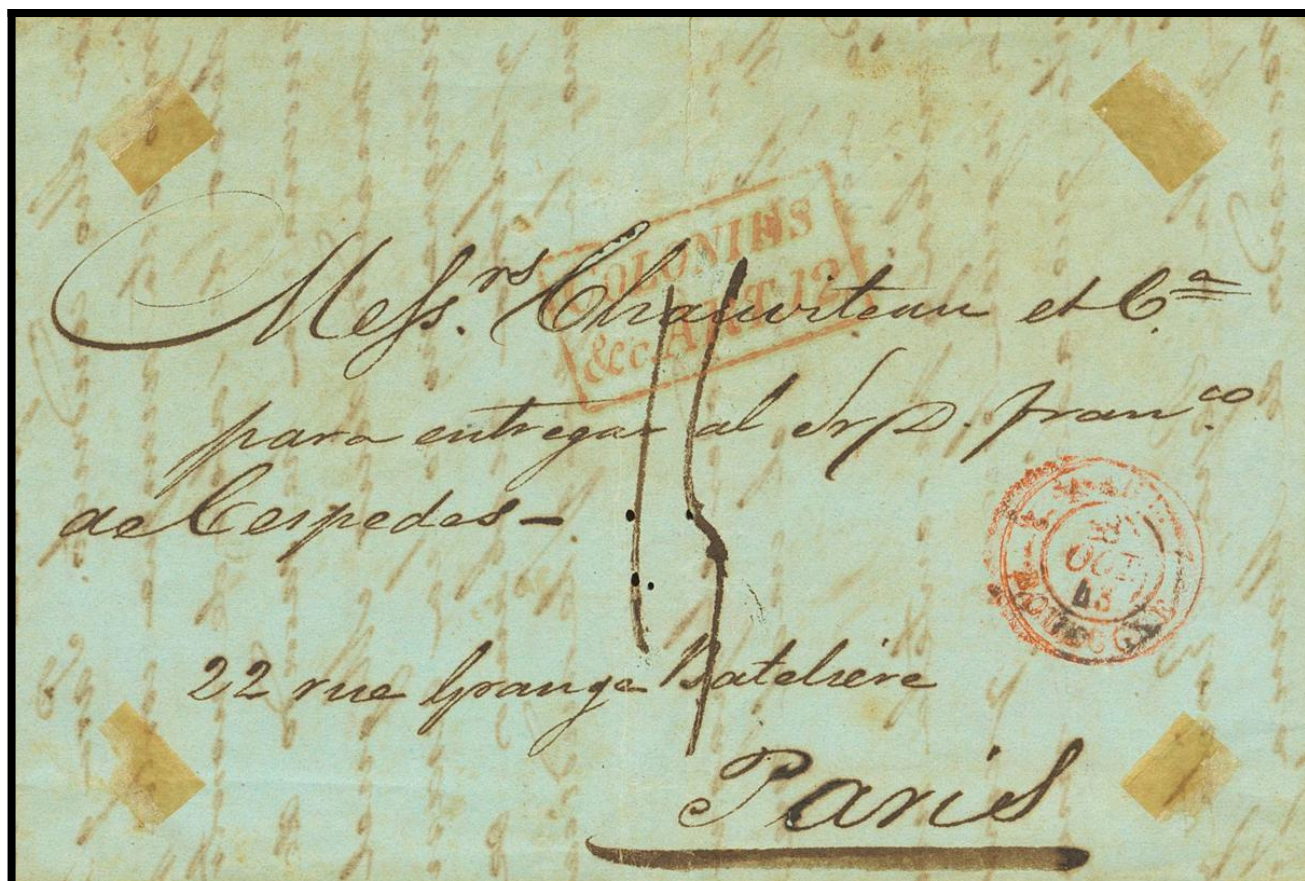 COLONIES
&c. ART. 12
Mess.rs Chauviteau et C.a
para entregar al Sr D. Fran.co
de Cespedes -
OCT
43
BOULOGNE
22 rue Grange Batelière
Paris